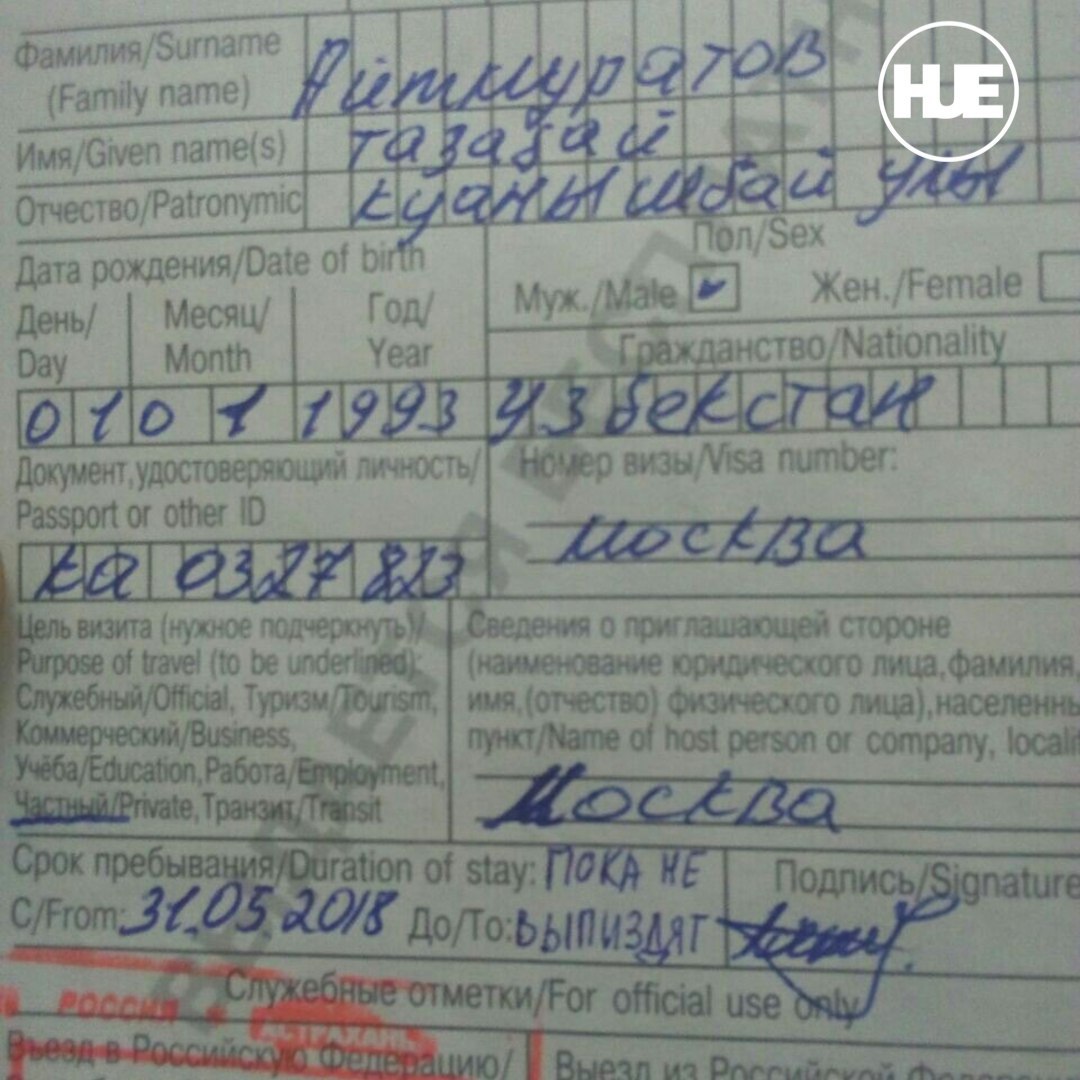 HUE
Фамилия/Surname
(Family name)
Айтмуратов
Имя/Given name(s)
тазабай
Отчество/Patronymic
куанышбай улы
Дата рождения/Date of birth
Пол/Sex
Муж./Male
Жен./Female
День/
Day
Месяц/
Month
Год/
Year
Гражданство/Nationality
01 01 1993
Узбекстан
Документ, удостоверяющий личность/
Passport or other ID
Номер визы/Visa number:
москва
ка 0327823
Цель визита (нужное подчеркнуть)/
Purpose of travel (to be underlined):
Служебный/Official, Туризм/Tourism,
Коммерческий/Business,
Учёба/Education, Работа/Employment,
Частный/Private, Транзит/Transit
Сведения о приглашающей стороне
(наименование юридического лица, фамилия,
имя, (отчество) физического лица), населенны
пункт/Name of host person or company, localit
Москва
Срок пребывания/Duration of stay: ПОКА НЕ
С/From: 31.05.2018 До/To: ВЫПИЗДЯТ
Подпись/Signature
Служебные отметки/For official use only
РОССИЯ
АСТРАХАНЬ
Въезд в Российскую Федерацию/
Выезд из Российской Федерации